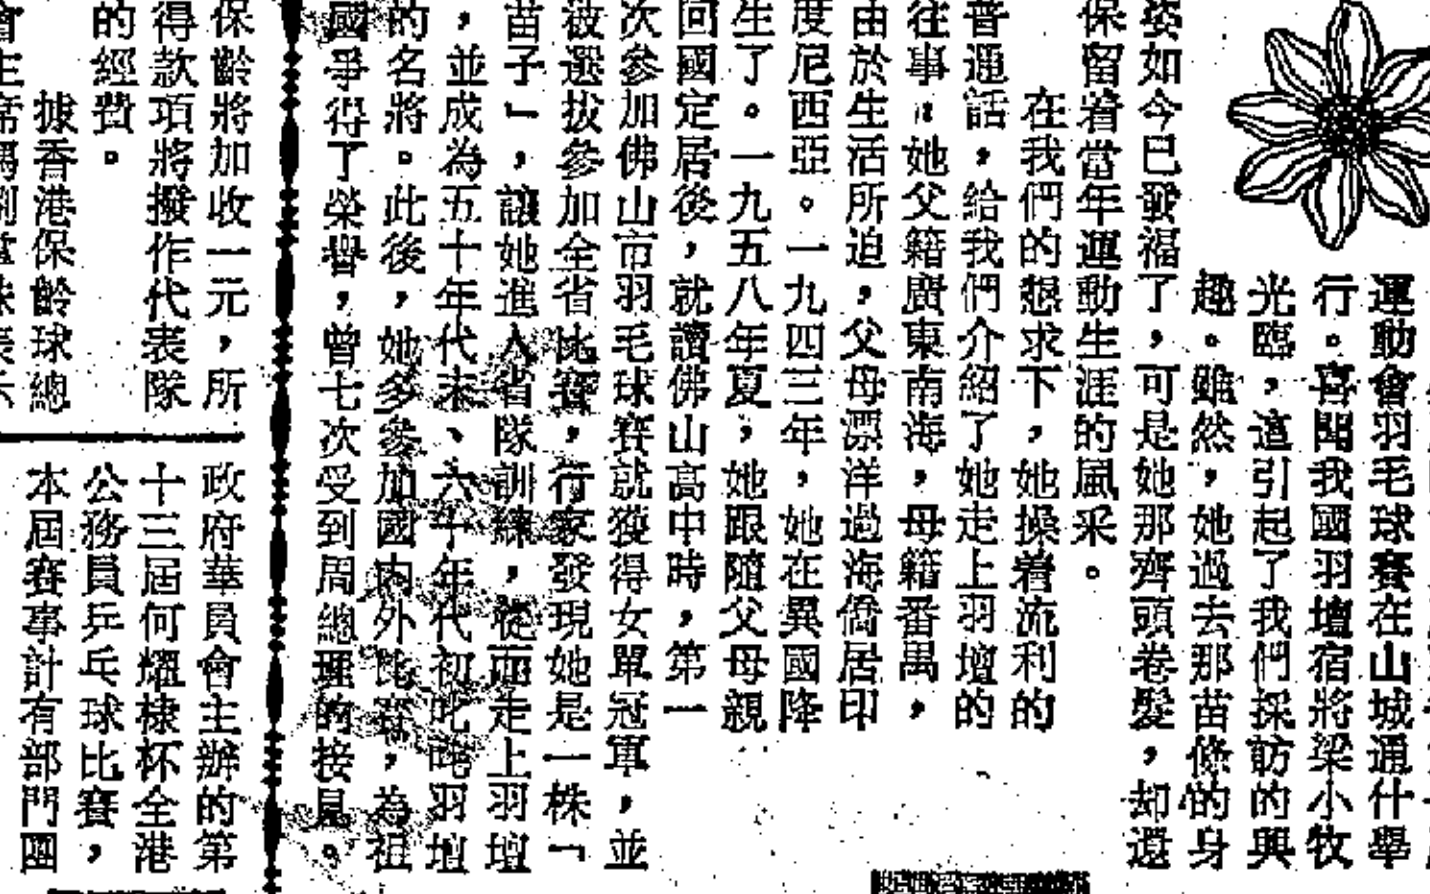 運動會羽毛球賽在山城通什舉
行。喜聞我國羽壇宿將梁小牧
光臨，這引起了我們採訪的興
趣。雖然，她過去那苗條的身
姿如今已發福了，可是她那齊頭卷髮，却還
保留着當年運動生涯的風采。
在我們的懇求下，她操着流利的
普通話，給我們介紹了她走上羽壇的
往事。她父籍廣東南海，母籍番禺，
由於生活所迫，父母漂洋過海僑居印
度尼西亞。一九四三年，她在異國降
生了。一九五八年夏，她跟隨父母親
回國定居後，就讀佛山高中時，第一
次參加佛山市羽毛球賽就獲得女單冠軍，並
被選拔參加全省比賽，行家發現她是一株「
苗子」，讓她進入省隊訓練，從而走上羽壇
，並成為五十年代末、六十年代初叱咤羽壇
的名將。此後，她多參加國內外比賽，為祖
國爭得了榮譽，曾七次受到周總理的接見。
保齡將加收一元，所
得款項將撥作代表隊
的經費。
據香港保齡球總
會主席
政府華員會主辦的第
十三屆何耀棣杯全港
公務員乒乓球比賽，
本屆賽事計有部門團